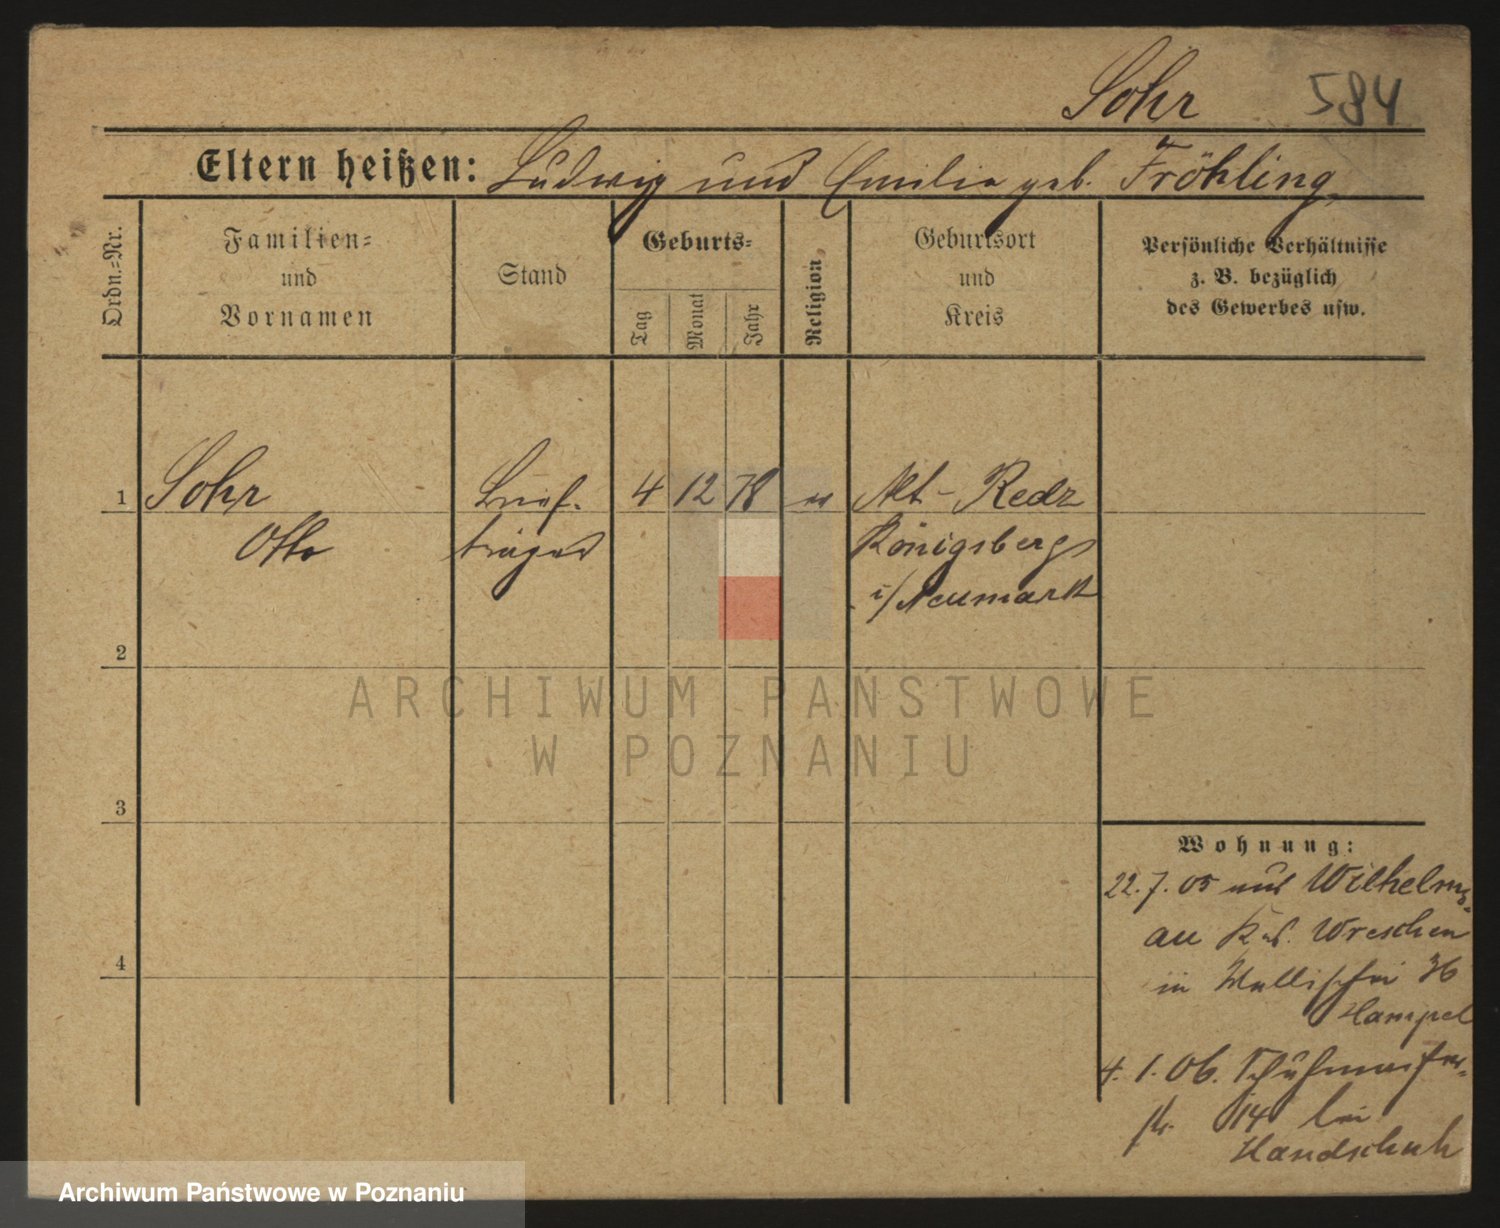 Sohr 584
Eltern heißen: Ludwig und Emilie geb. Fröhling
Ordn.-Nr.
Familien-
und
Vornamen
Stand
Geburts-
Tag
Monat
Jahr
Religion
Geburtsort
und
Kreis
Persönliche Verhältnisse
z. B. bezüglich
des Gewerbes usw.
1 Sohr Brief- 4 12 78 ev Alt-Redz
Otto träger Königsberg
i/Neumark
2
ARCHIWUM PAŃSTWOWE
W POZNANIU
3
Wohnung:
22.7.05 aus Wilhelms-
au Wreschen
in Wallischei 36
Hampel
4
4.1.06. Schuhmacher-
str. 14 bei
Handschuh
Archiwum Państwowe w Poznaniu